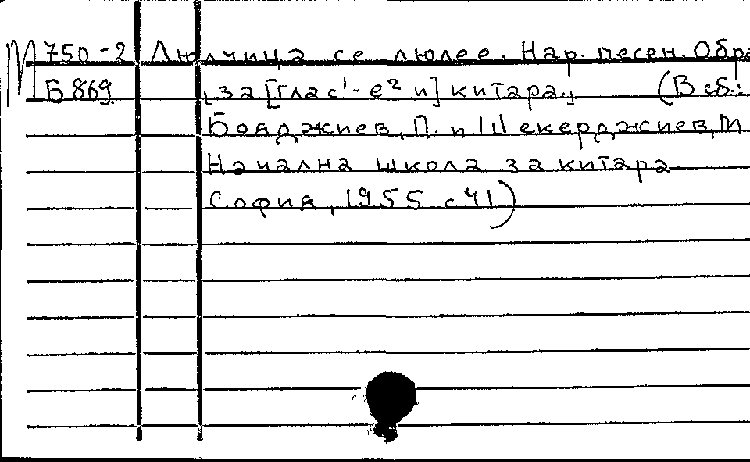 М 750-2 Люлчица се люлее. Нар. песен. Обра
Б 869 за [глас¹-е² и] китара. (В сб.:
Бояджиев, П. и Шекерджиев, М
Начална школа за китара
София, 1955 с 41)